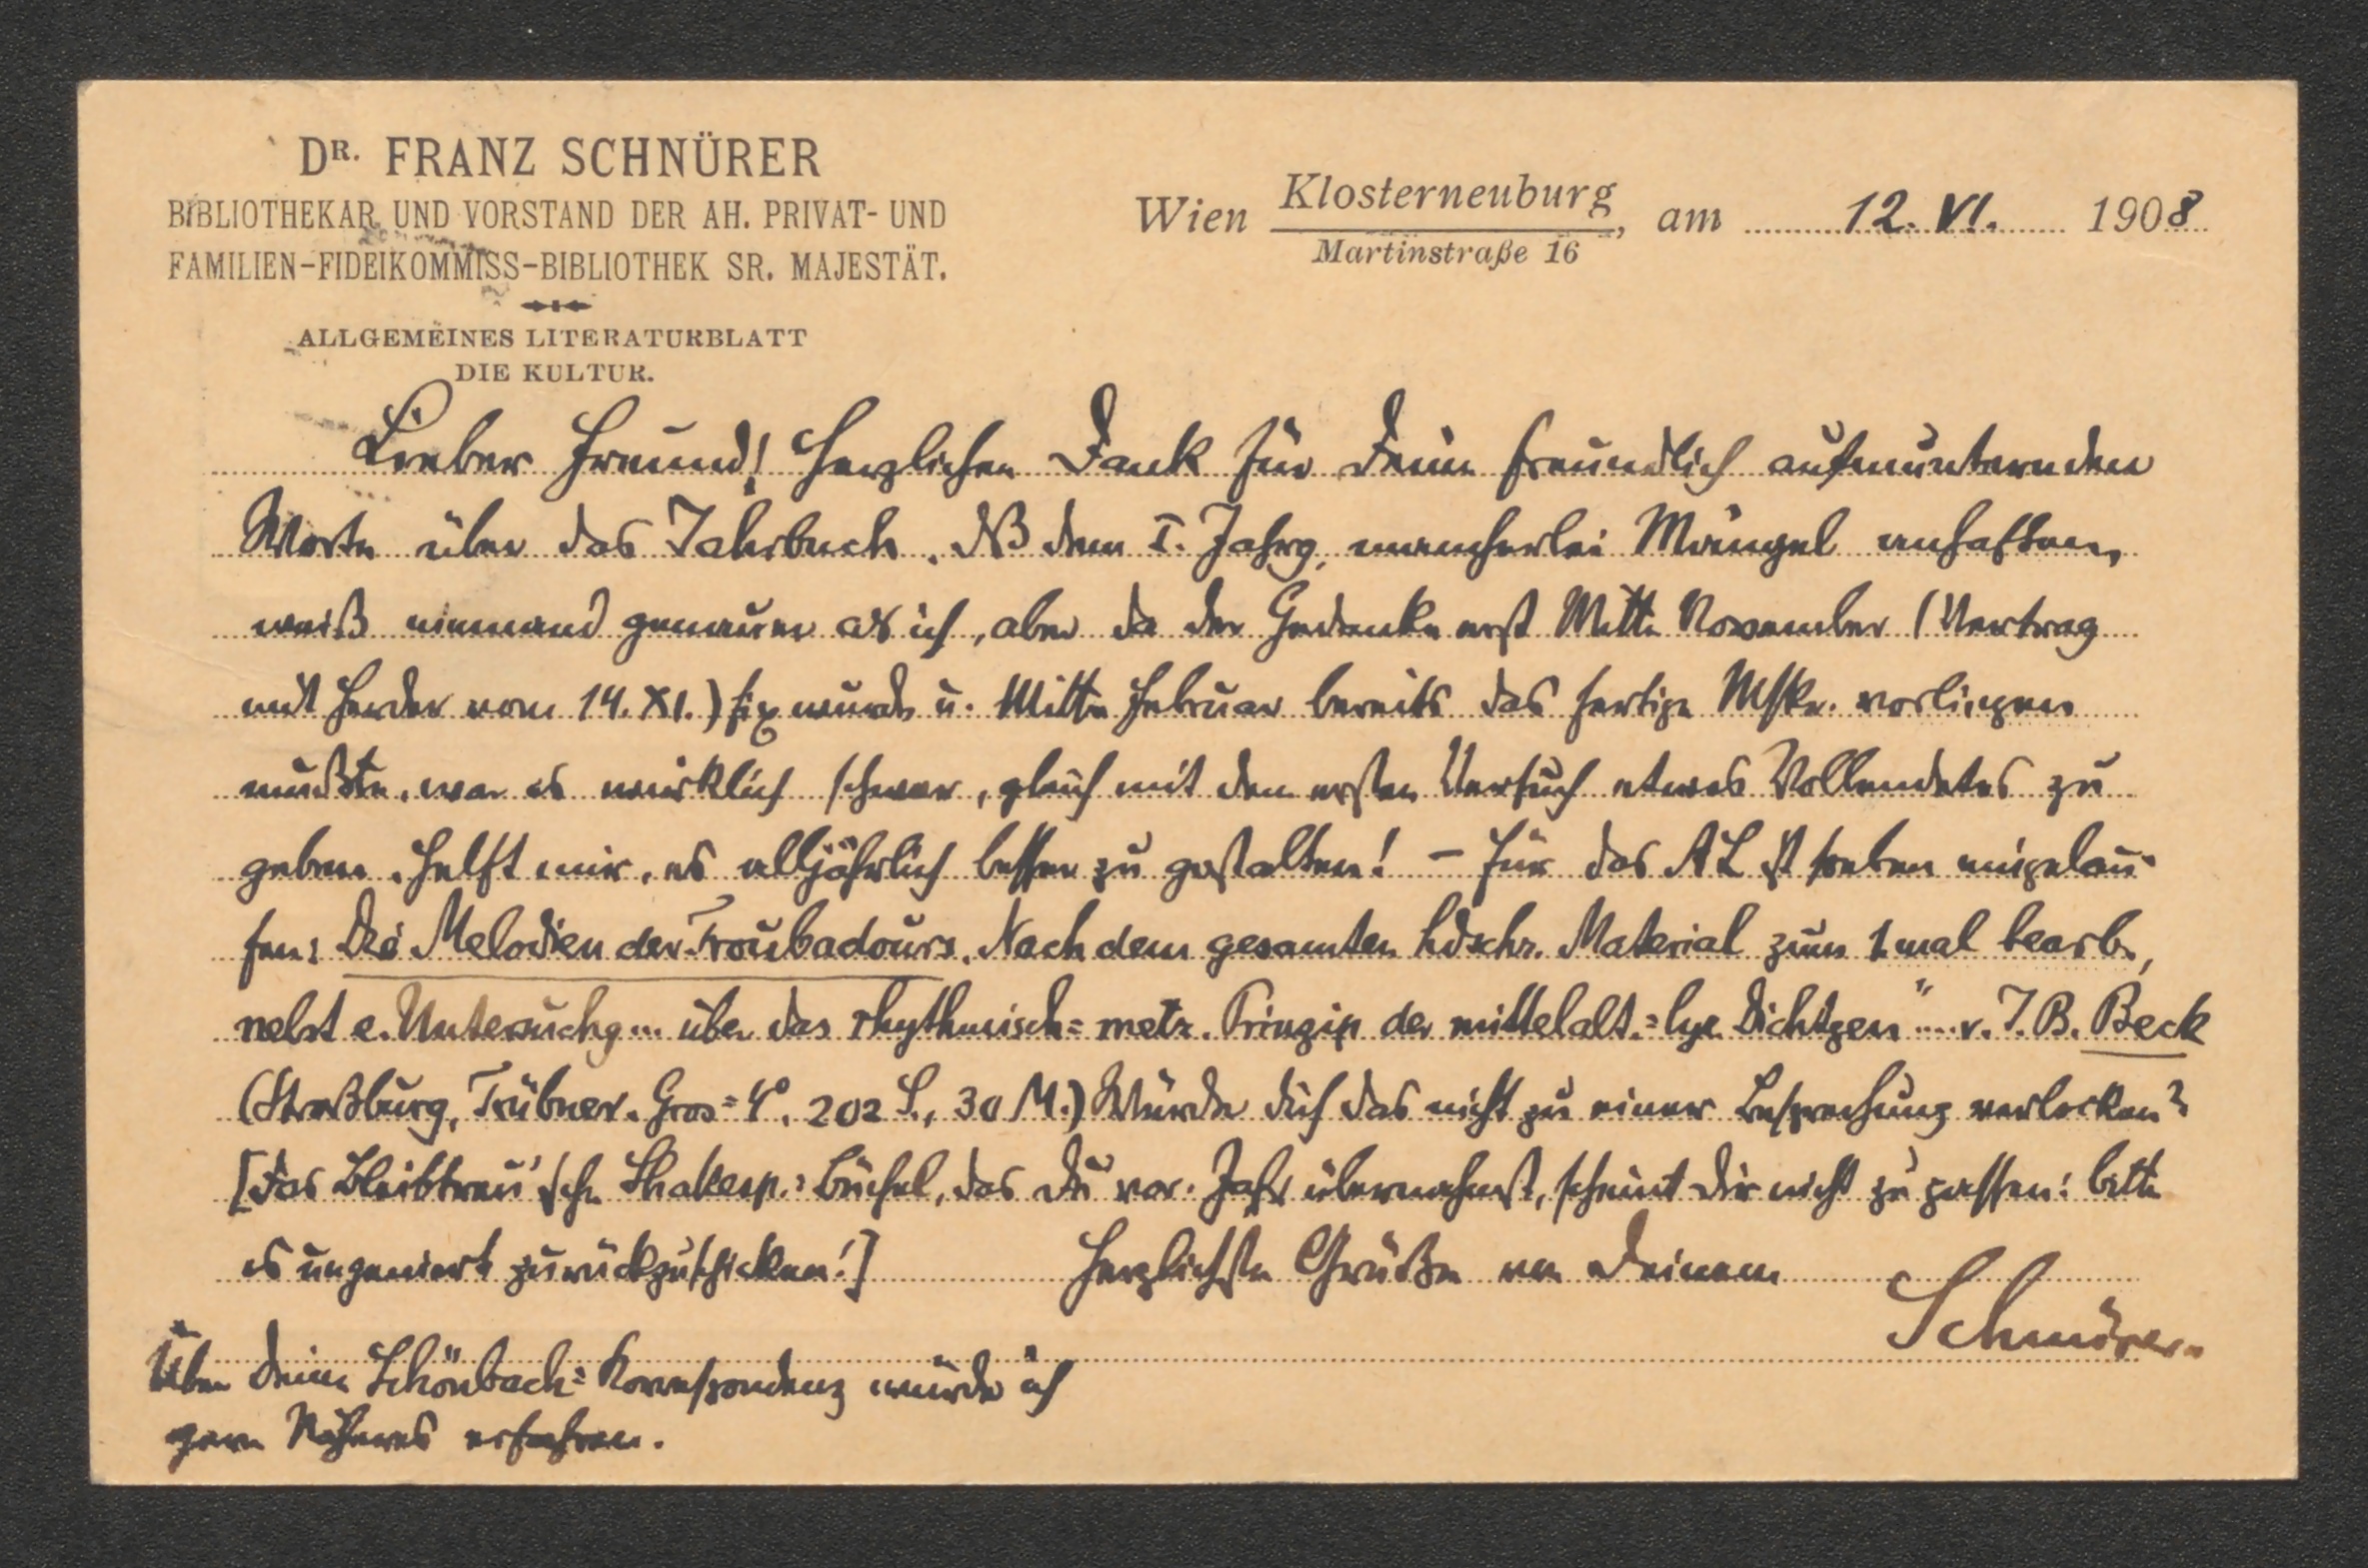 DR. FRANZ SCHNÜRER
BIBLIOTHEKAR UND VORSTAND DER AH. PRIVAT- UND
FAMILIEN-FIDEIKOMMISS-BIBLIOTHEK SR. MAJESTÄT.
ALLGEMEINES LITERATURBLATT
DIE KULTUR.
Wien Klosterneuburg, am 12. VI. 1908
Martinstraße 16
Lieber Freund! Herzlichen Dank für Deine freundlich aufmunternden
Worte über das Jahrbuch. Dß dem I. Jahrg. mancherlei Mängel anhaften,
weiß niemand genauer als ich, aber da der Gedanke erst Mitte November (Vertrag
mit Herder vom 14. XI.) fix wurde u. Mitte Februar bereits das fertige Mskr. vorliegen
mußte, war es wirklich schwer, gleich mit dem ersten Versuch etwas Vollendetes zu
geben. Helft mir, es alljährlich besser zu gestalten! – Für das AL ist soeben eingelau-
fen: Die Melodien der Troubadours. Nach dem gesamten hdschr. Material zum 1. mal bearb.,
nebst e. Untersuchg... über das rhythmisch=metr. Prinzip der mittelalt.=lyr. Dichtgen" .... v. J. B. Beck
(Straßburg, Trübner. Gros=4°. 202 S., 30 M.) Würde Dich das nicht zu einer Besprechung verlocken?
[Das Bleibtreu'sche Shakesp.=Büchel, das Du vor. Jahr übernahmst, scheint Dir nicht zu passen: bitte
es ungeniert zurückzuschicken!] Herzlichste Grüße von Deinem
Schnürer.
Über Deine Schönbach=Korrespondenz würde ich
gern Näheres erfahren.